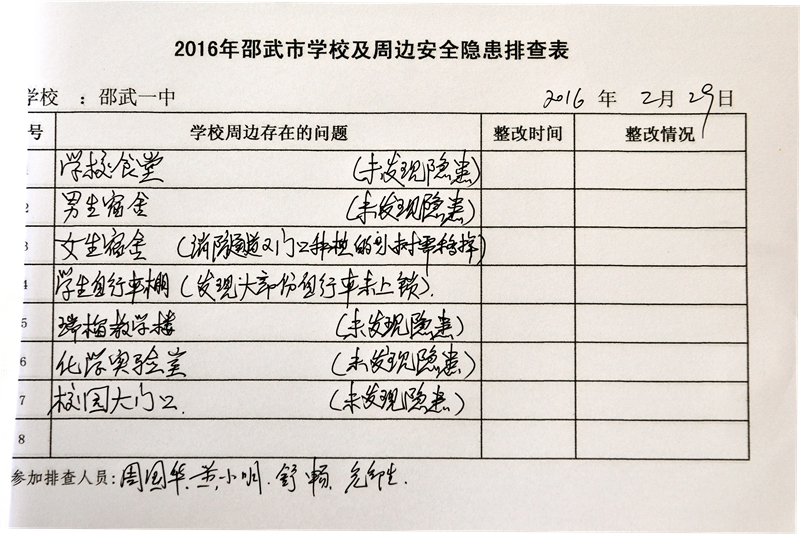 2016年邵武市学校及周边安全隐患排查表
学校 ：邵武一中 2016 年 2月 29日
号 学校周边存在的问题 整改时间 整改情况
1 学校食堂 (未发现隐患)
2 男生宿舍 (未发现隐患)
3 女生宿舍 (消防通道门口种植的小树需移掉)
4 学生自行车棚 (发现大部份自行车未上锁).
5 瑞梅教学楼 (未发现隐患)
6 化学实验室 (未发现隐患)
7 校园大门口. (未发现隐患)
8
参加排查人员: 周国华. 黄小明. 舒畅.